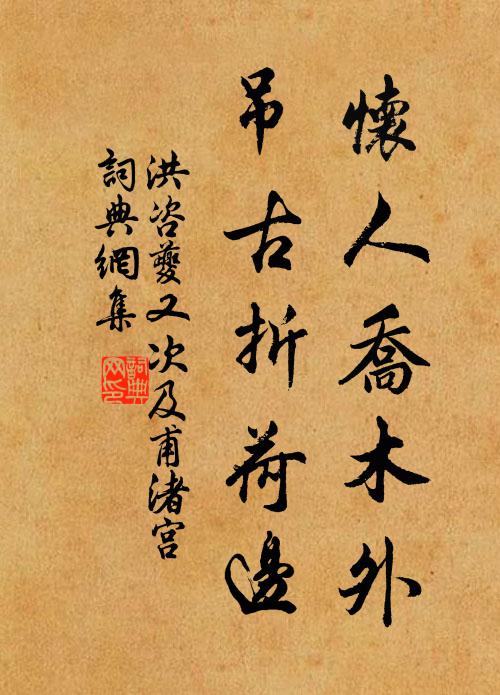 懷人喬木外
吊古折荷邊
洪咨夔又次及甫渚宮
詞典網集
詞典
网印